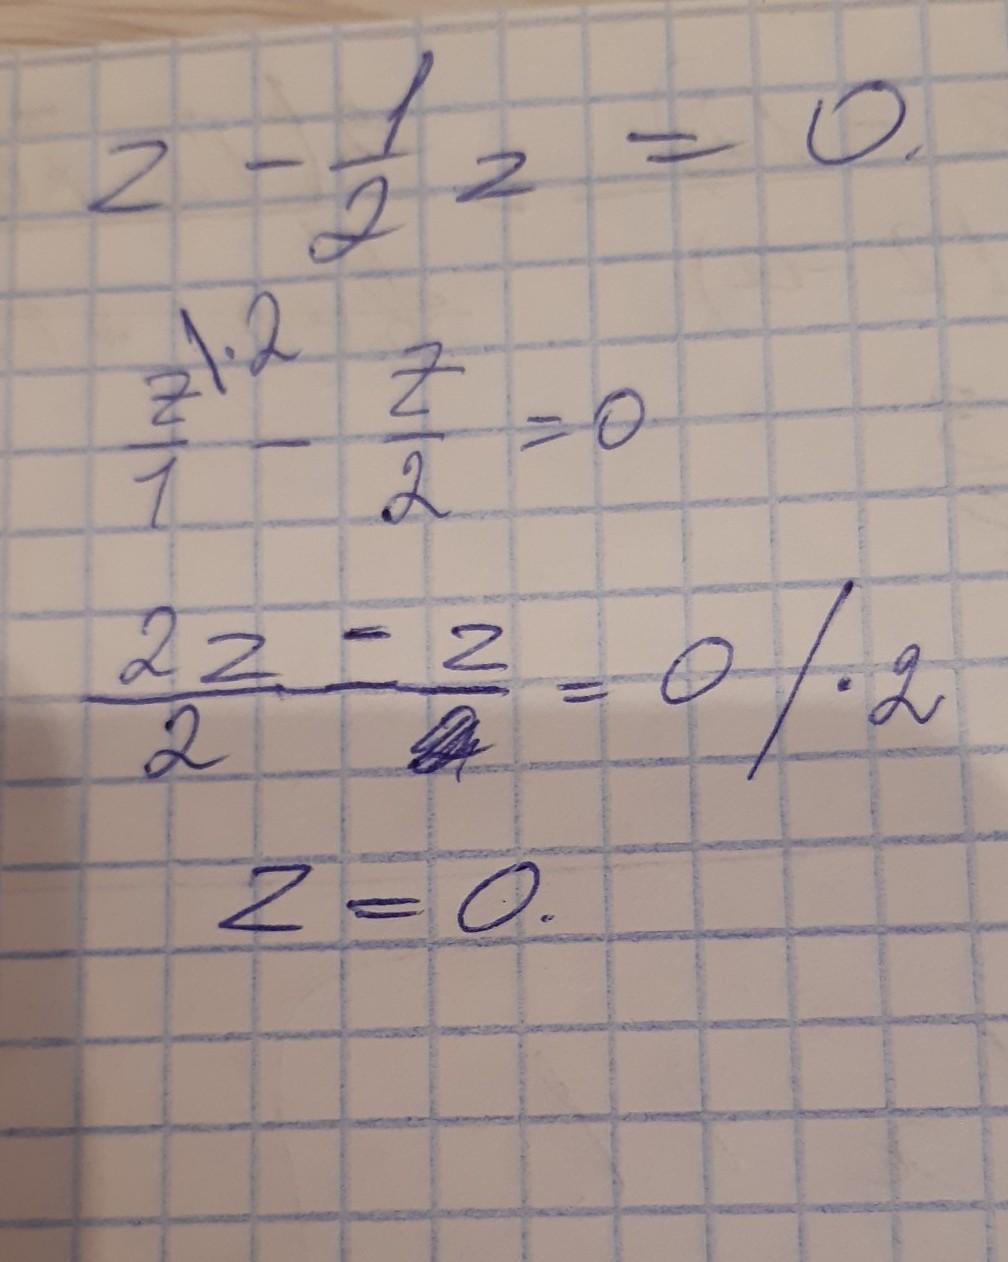 z - 1/2 z = 0.
z/1 \·2 - z/2 = 0
(2z - z)/2 = 0 / · 2
z = 0.